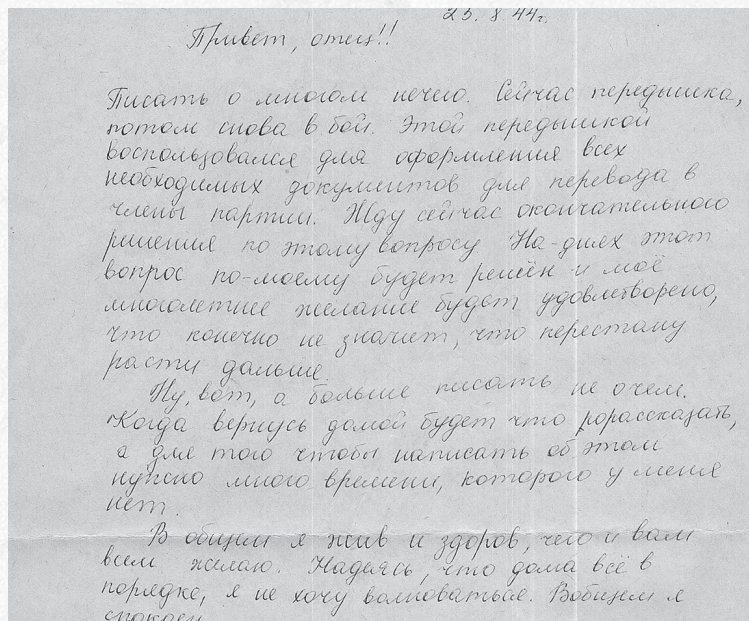 23. 8 44г.
Привет, отец!!
Писать о многом нечего. Сейчас передышка,
потом снова в бой. Этой передышкой
воспользовался для оформления всех
необходимых документов для перевода в
члены партии. Жду сейчас окончательного
решения по этому вопросу На-днях этот
вопрос по-моему будет решён и моё
многолетнее желание будет удовлетворено,
что конечно не значит, что перестану
расти дальше.
Ну, вот, а больше писать не о чем.
Когда вернусь домой будет что порассказать,
а для того чтобы написать об этом
нужно много времени, которого у меня
нет.
В общем я жив и здоров, чего и вам
всем желаю. Надеясь, что дома всё в
порядке, я не хочу волноваться. Вобщем я
спокоен